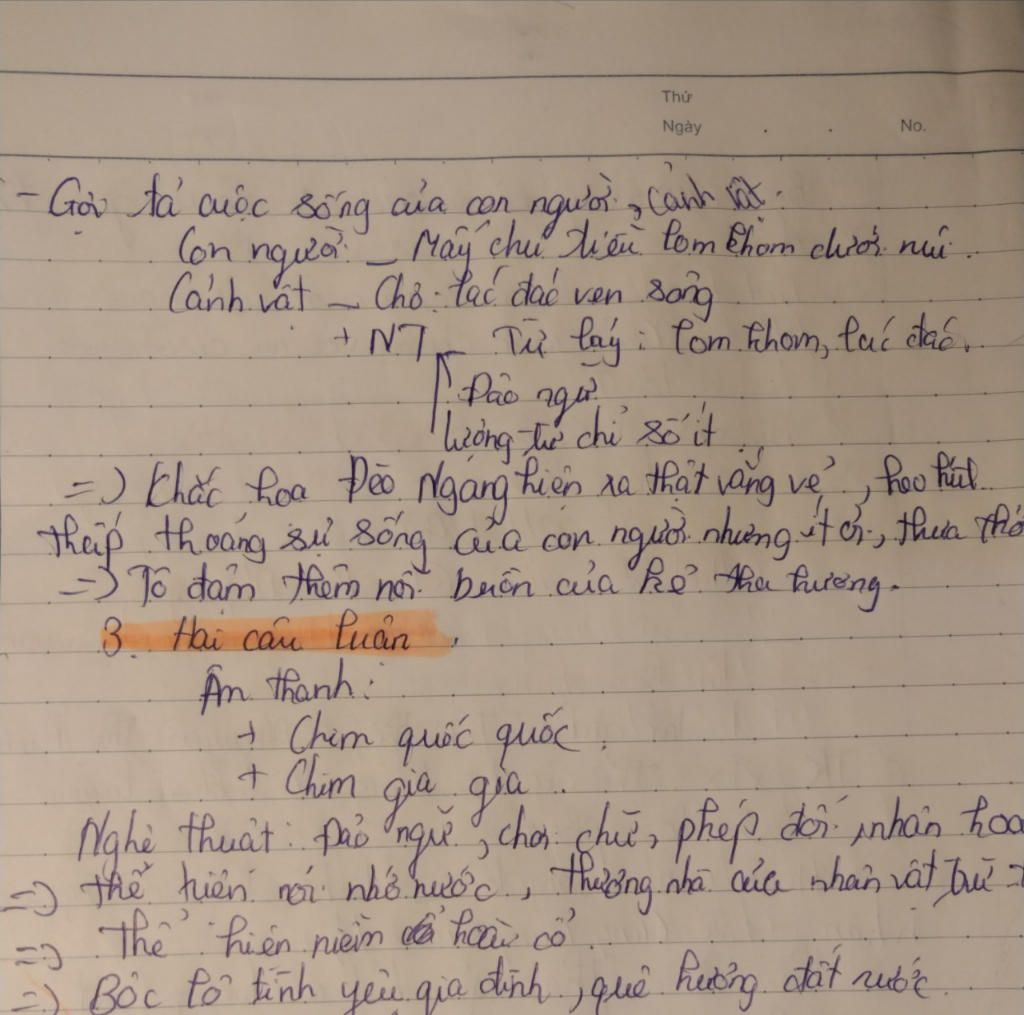 Thứ
Ngày . . No.
- Gợi tả cuộc sống của con người, cảnh vật.
Con người - Mấy chú tiều lom khom dưới núi.
Cảnh vật - Chợ: lác đác ven sông
+ NT - Từ láy: lom khom, lác đác.
Đảo ngữ
lượng từ chỉ số ít
=> Khắc họa Đèo Ngang hiện ra thật vắng vẻ, heo hút
thấp thoáng sự sống của con người nhưng ít ỏi, thưa thớ
=> Tô đậm thêm nỗi buồn của kẻ tha hương.
3. Hai câu luận
Âm thanh:
+ Chim quốc quốc.
+ Chim gia gia.
Nghệ thuật: Đảo ngữ, chơi chữ, phép đối, nhân hoá
=> thể hiện nỗi nhớ nước, thương nhà của nhân vật trữ
=> Thể hiện niềm hoài cổ.
=> Bộc lộ tình yêu gia đình, quê hương đất nước